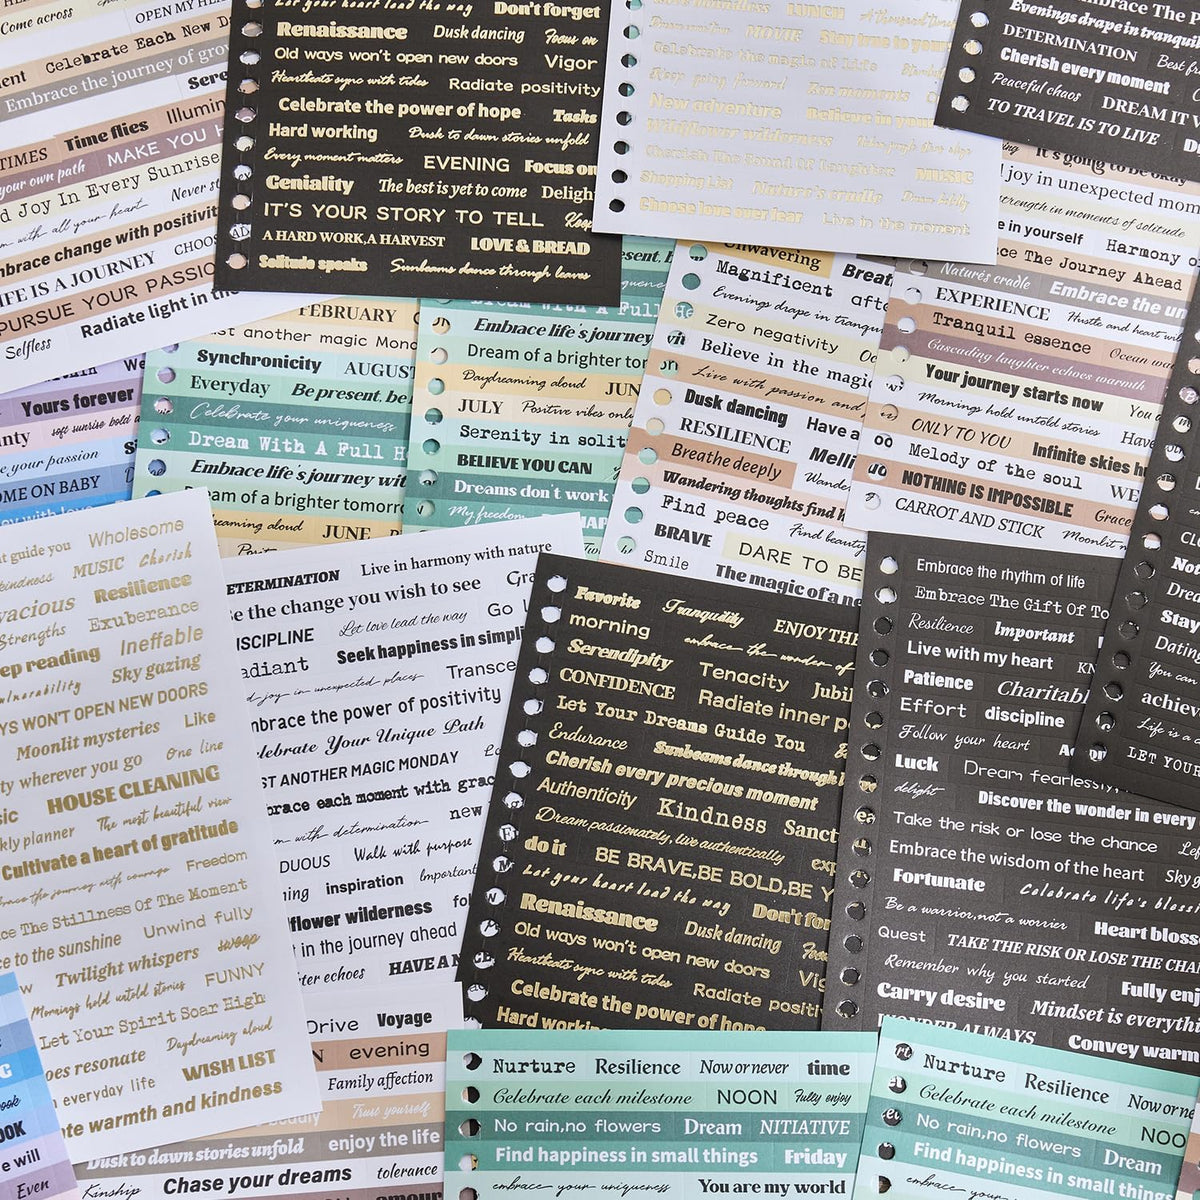 Come across
OPEN MY HEA
Celebrate Each New D
Embrace the journey of grow
Sere
Time flies Illumin
TIMES MAKE YOU H
your own path
d Joy In Every Sunrise
m with all your heart Never st
mbrace change with positivit
IFE IS A JOURNEY CHOOS
PURSUE YOUR PASSIO
Selfless Radiate light in the
Let your heart lead the way Don't forget
Renaissance Dusk dancing Focus on
Old ways won't open new doors Vigor
Heartbeats sync with tides Radiate positivity
Celebrate the power of hope Tasks
Hard working Dusk to dawn stories unfold
Every moment matters EVENING Focus on
Geniality The best is yet to come Deligh
IT'S YOUR STORY TO TELL Keep
A HARD WORK,A HARVEST LOVE & BREAD
Solitude speaks Sunbeams dance through leaves
LUNCH
MOVIE Stay true to your
Celebrate the magic of life
Keep going forward Zen moments
New adventure Believe in your
Wildflower wilderness
Cherish The Sound Of Laughter MUSIC
Shopping List Nature's cradle Dawn
Choose love over fear Live in the moment
Embrace The P
Evenings drape in tranquil
DETERMINATION Best fr
Cherish every moment
Peaceful chaos DREAM IT W
TO TRAVEL IS TO LIVE
It's going to be okay
joy in unexpected mom
strength in moments of solitude
e in yourself Harmony o
ce The Journey Ahead
Nature's cradle Embrace the un
EXPERIENCE Hustle and heart wil
Tranquil essence Ocean wa
Cascading laughter echoes warmth
Your journey starts now You a
Mornings hold untold stories Have
ONLY TO YOU Infinite skies h
Melody of the soul WE
NOTHING IS IMPOSSIBLE Grace
CARROT AND STICK Moonlit n
Unwavering Breat
Magnificent afte
Evenings drape in tranqu
Zero negativity Oc
Believe in the magic
Live with passion and
Dusk dancing Have a
RESILIENCE
Breathe deeply Melli
Wandering thoughts find h Wande
Find peace Find beauty
BRAVE DARE TO BE
Smile The magic of a ne
FEBRUARY
st another magic Mond
Synchronicity AUGUST
Everyday Be present. be
Celebrate your uniqueness
Dream With A Full H
Embrace life's journey wit
Dream of a brighter tomorro
eaming aloud JUNE
Dream With A Full
Embrace life's journey
Dream of a brighter tom
Daydreaming aloud JUN
JULY Positive vibes only
Serenity in solit
BELIEVE YOU CAN
Dreams don't work
My freedom
Yours forever
nty soft sunrise bold a
e your passion
OME ON BABY
t guide you Wholesome
kindness MUSIC Cherish
vacious Resilience
Strengths Exuberance
ep reading Ineffable
ulnerability Sky gazing
YS WON'T OPEN NEW DOORS
Moonlit mysteries Like
ty wherever you go One line
sic HOUSE CLEANING
kly planner The most beautiful view
Cultivate a heart of gratitude
the journey with courage Freedom
ce The Stillness Of The Moment
ce to the sunshine Unwind fully
w Twilight whispers swoop
Mornings hold untold stories FUNNY
Let Your Spirit Soar High
oes resonate Daydreaming aloud
everyday life WISH LIST
ate warmth and kindness
ETERMINATION Live in harmony with nature
Be the change you wish to see Gra
DISCIPLINE Let love lead the way Go
adiant Seek happiness in simpli
d joy in unexpected places Transce
mbrace the power of positivity
elebrate Your Unique Path
ST ANOTHER MAGIC MONDAY
brace each moment with grac
m with determination new
DUOUS Walk with purpose
ning inspiration Important
flower wilderness fo
t in the journey ahead
ter echoes HAVE A N
Drive Voyage
N evening
Family affection
Trust yourself
Dusk to dawn stories unfold enjoy the life
Kinship Chase your dreams tolerance
amour
Favorite Tranquility ENJOY THE
morning embrace the wonder of
Serendipity Tenacity Jubil
CONFIDENCE Radiate inner p
Let Your Dreams Guide You
Endurance Sunbeams dance through l
Cherish every precious moment
Authenticity Kindness Sanct
Dream passionately, live authentically exp
do it BE BRAVE,BE BOLD,BE Y
Let your heart lead the way Don't for
Renaissance Dusk dancing Foc
Old ways won't open new doors Vig
Heartbeats sync with tides Radiate positi
Celebrate the power of hope
Hard workin
Embrace the rhythm of life
Embrace The Gift Of To
Resilience Important
Live with my heart KN
Patience Charitabl
Effort discipline
Follow your heart
Luck Dream fearlessly,
delight Discover the wonder in every
Take the risk or lose the chance Let
Embrace the wisdom of the heart Sky g
Fortunate Celebrate life's bless
Be a warrior,not a worrier Heart bloss
Quest TAKE THE RISK OR LOSE THE CHA
Remember why you started Fully enj
Carry desire Mindset is everythi
WONDER ALWAYS Convey warm
Not
Drea
Stay
Dating
You can
achiev
Life is a
LET YOUR
Nurture Resilience Now or never time
Celebrate each milestone NOON Fully enjoy
No rain,no flowers Dream NITIATIVE
Find happiness in small things Friday
embrace your uniqueness You are my world
Nurture Resilience Now or n
Celebrate each milestone NOO
No rain,no flowers Dream
Find happiness in small things
embrace your
ook
OOK
e will
Even